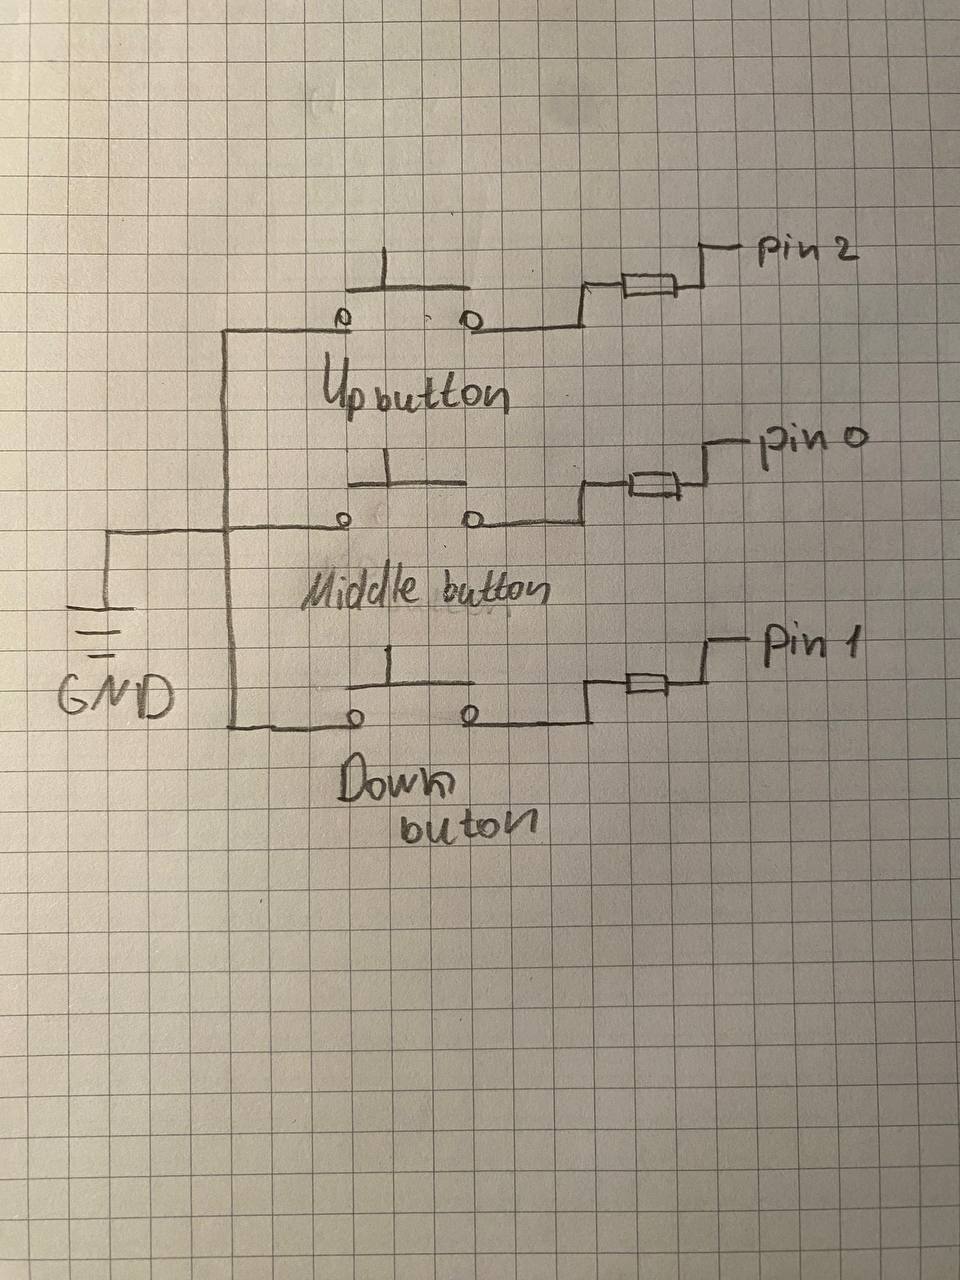 pin 2
Up button
pin 0
Middle button
Pin 1
GND
Down
buton